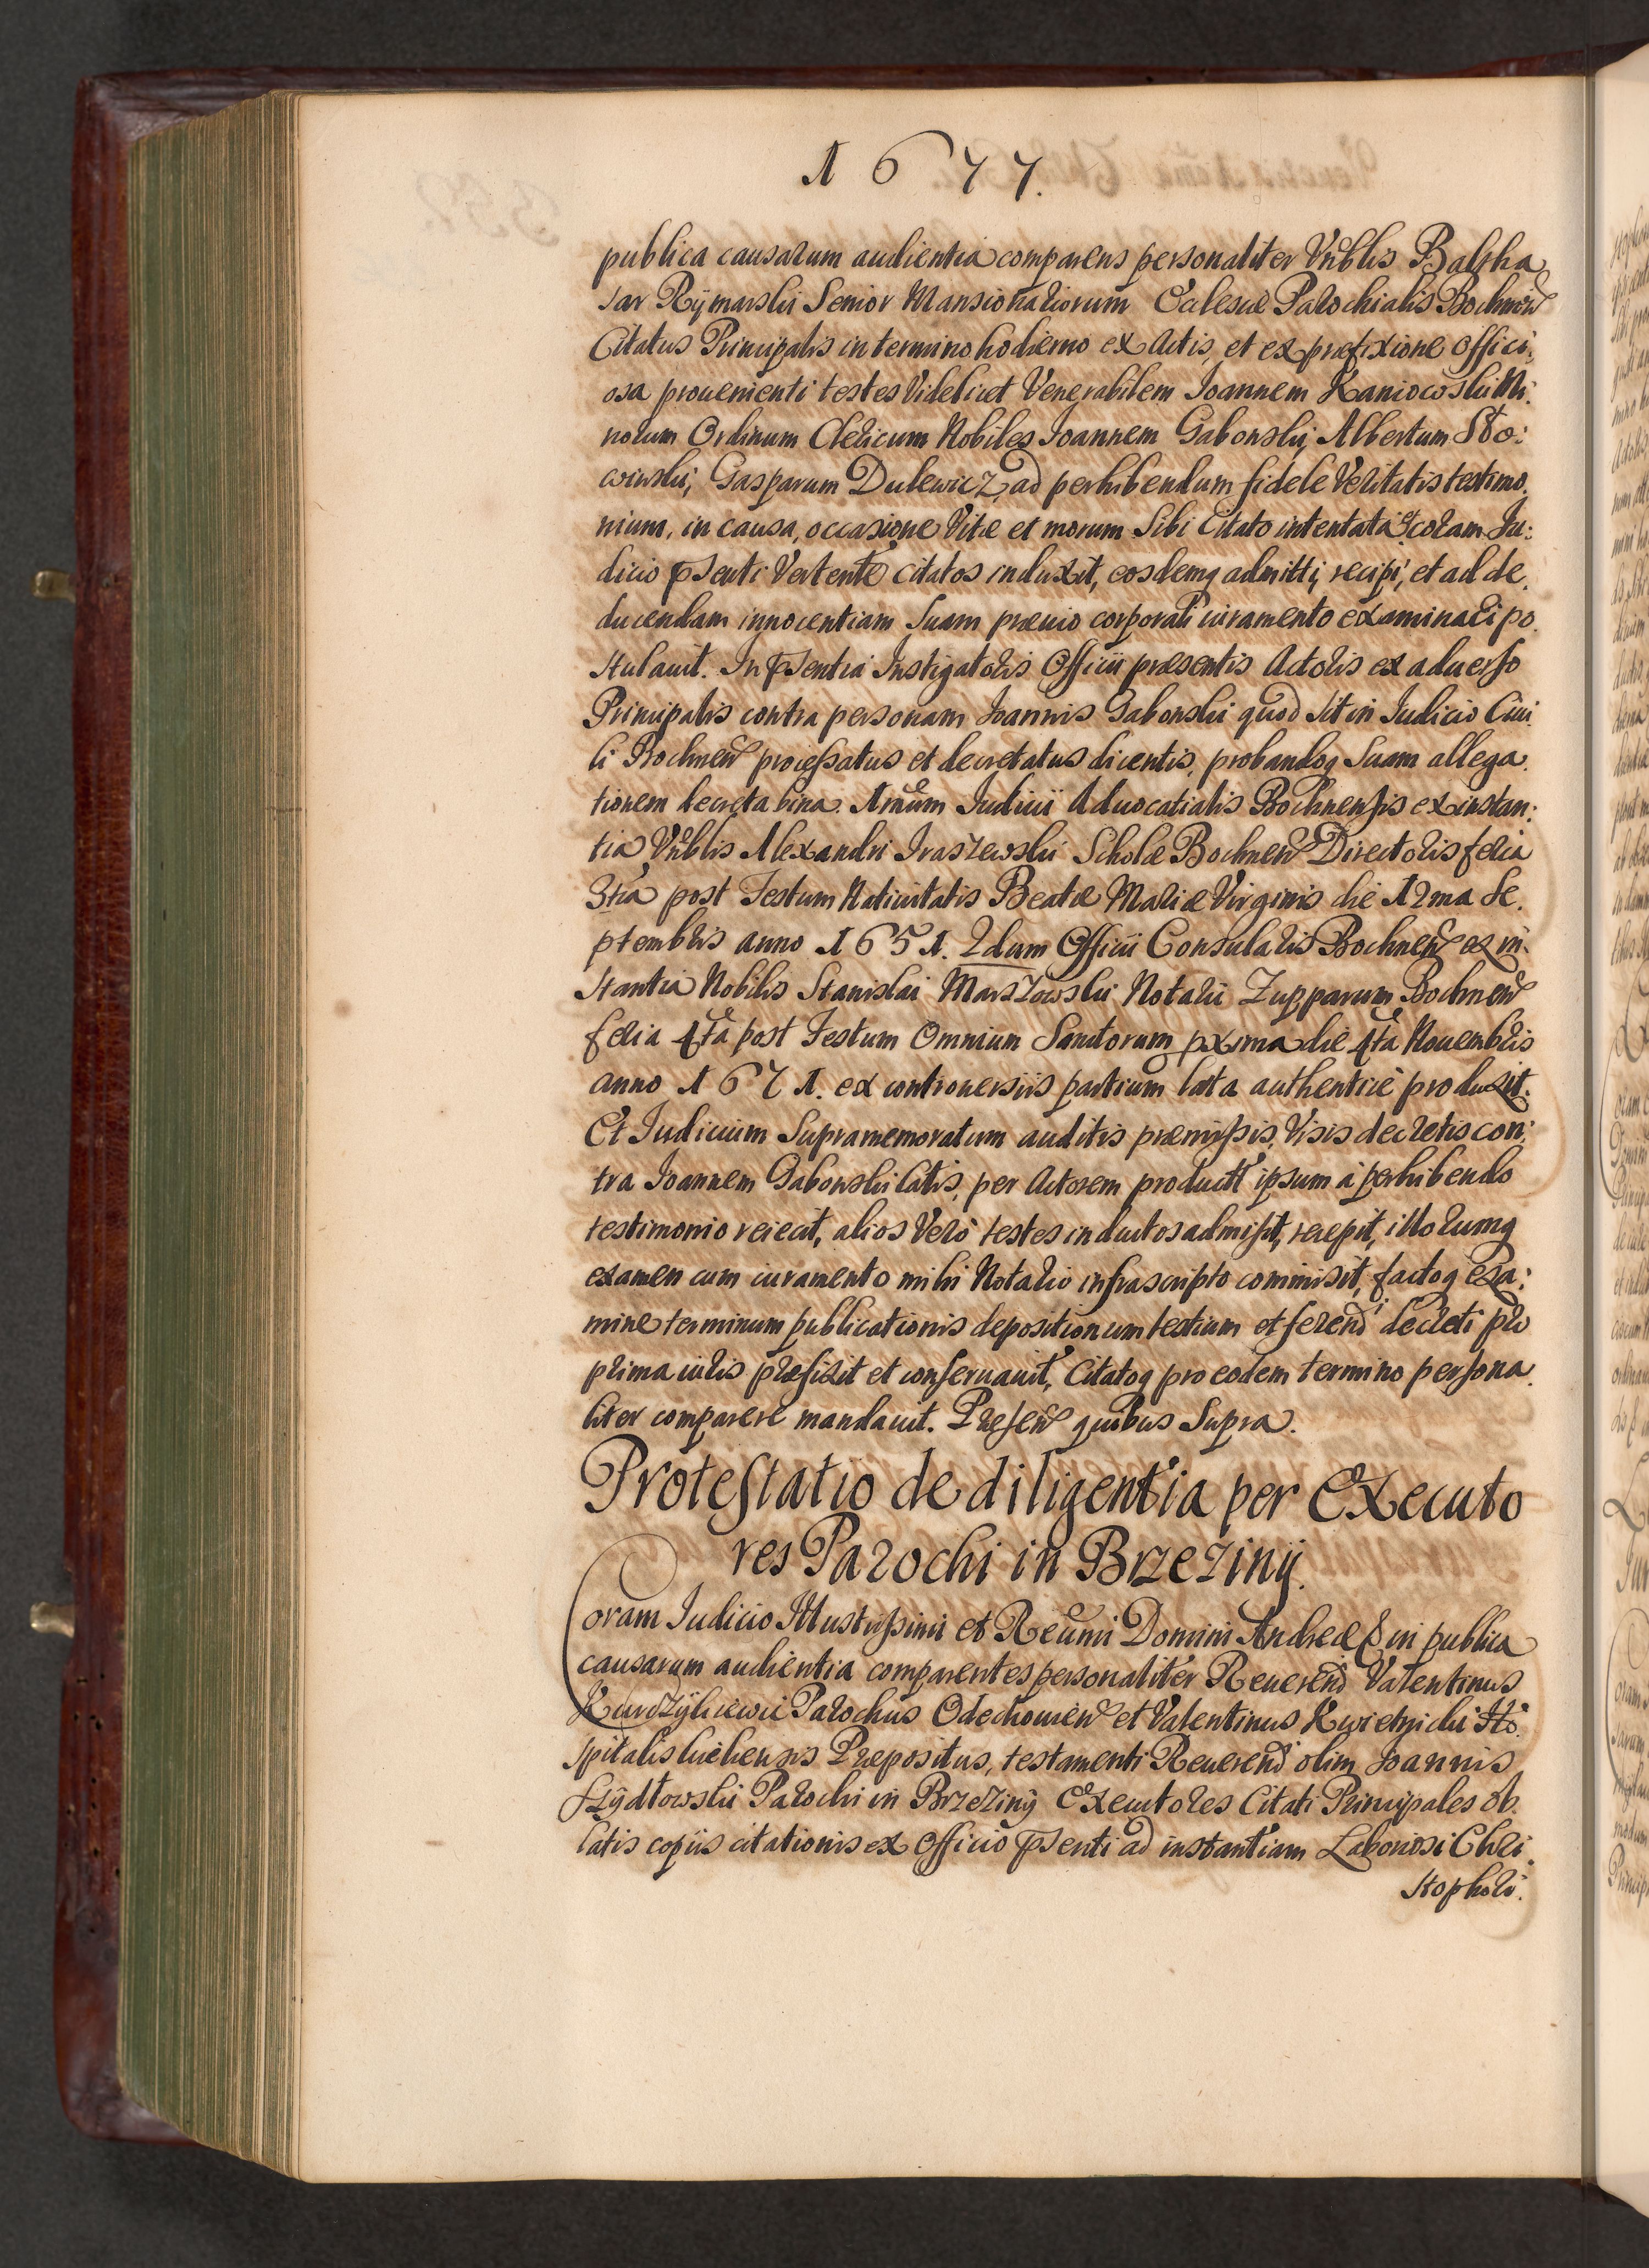 1677.
publica causarum audientia comparens personaliter Vnblis Baltha
sar Rÿmarski Senior Mansionariorum Ecclesiæ Parochialis Bochnen
Citatus Principalis in termino hodierno ex Actis, et ex præfixione offici:
osa prouenienti testes Videlicet Venerabilem Joannem Kaniowski Mi:
norum Ordinum Clericum Nobiles Joannem Gabonski, Albertum Sło:
winski, Gasparum Dulewicz ad perhibendum fidele Veritatis testimo
nium, in causa, occasione Vitæ et morum Sibi Citato intentata et coram Ju:
dicio pnti Vertente citatos induxit, eosdemq admitti, recipi, et ad de
ducendam innocentiam Suam præuio corporali iuramento examinari po
stulauit. In pntia Instigatoris Officii præsentis Actoris ex aduerso
Principalis contra personam Joannis Gabonski quod sit in Judicio Ciui
li Bochnen processatus et decretatus dicentis, probandoq Suam allega
tionem decreta bina. 1mum Judicii Aduocatialis Bochnensis ex instan:
tia Vnblis Alexandri Iraszewski Scholæ Bochnen Directoris feria
3tia post Festum Natiuitatis Beatæ Mariæ Virginis die 12ma Se
ptembris anno 1651. 2dum Officii Consularis Bochnen ex in
stantia Nobilis Stanislai Marszowski Notarii Zupparum Bochnen
feria 4ta post Festum Omnium Sanctorum pxima die 4ta Nouembris
anno 1671. ex controuersiis partium lata authentice produxit.
Et Judicium Supramemoratum auditis præmissis, Visis decretis con:
tra Joannem Gabonski latis, per Actorem productt ipsum à perhibendo
testimonio reiecit, alios Verò testes inductos admisit, recepit, illorumq
examen cum iuramento mihi Notario infrascripto commisit, factoq exa:
mine terminum publicationis depositionum testium et ferendi decreti pro
prima iuris præfixit et conseruauit, Citatoq pro eodem termino persona
liter comparere mandauit. Præsen quibus Supra.
Protestatio de diligentia per Executo
res Parochi in Brzezinÿ.
Coram Judicio Illustrissimi et Reumi Domini Andreæ & in publica
causarum audientia comparentes personaliter Reuerend Valentinus
Kurdzÿkiewic Parochus Odechowien et Valentinus Kwietnicki Ho
spitalis Præpositus, testamenti Reuerend olim Joannis
Szÿdłowski Parochi in Brzezinÿ Executores Citati Principales ob
latis copiis citationis ex Officio pnti ad instantiam Laboriosi Chri
stophori.